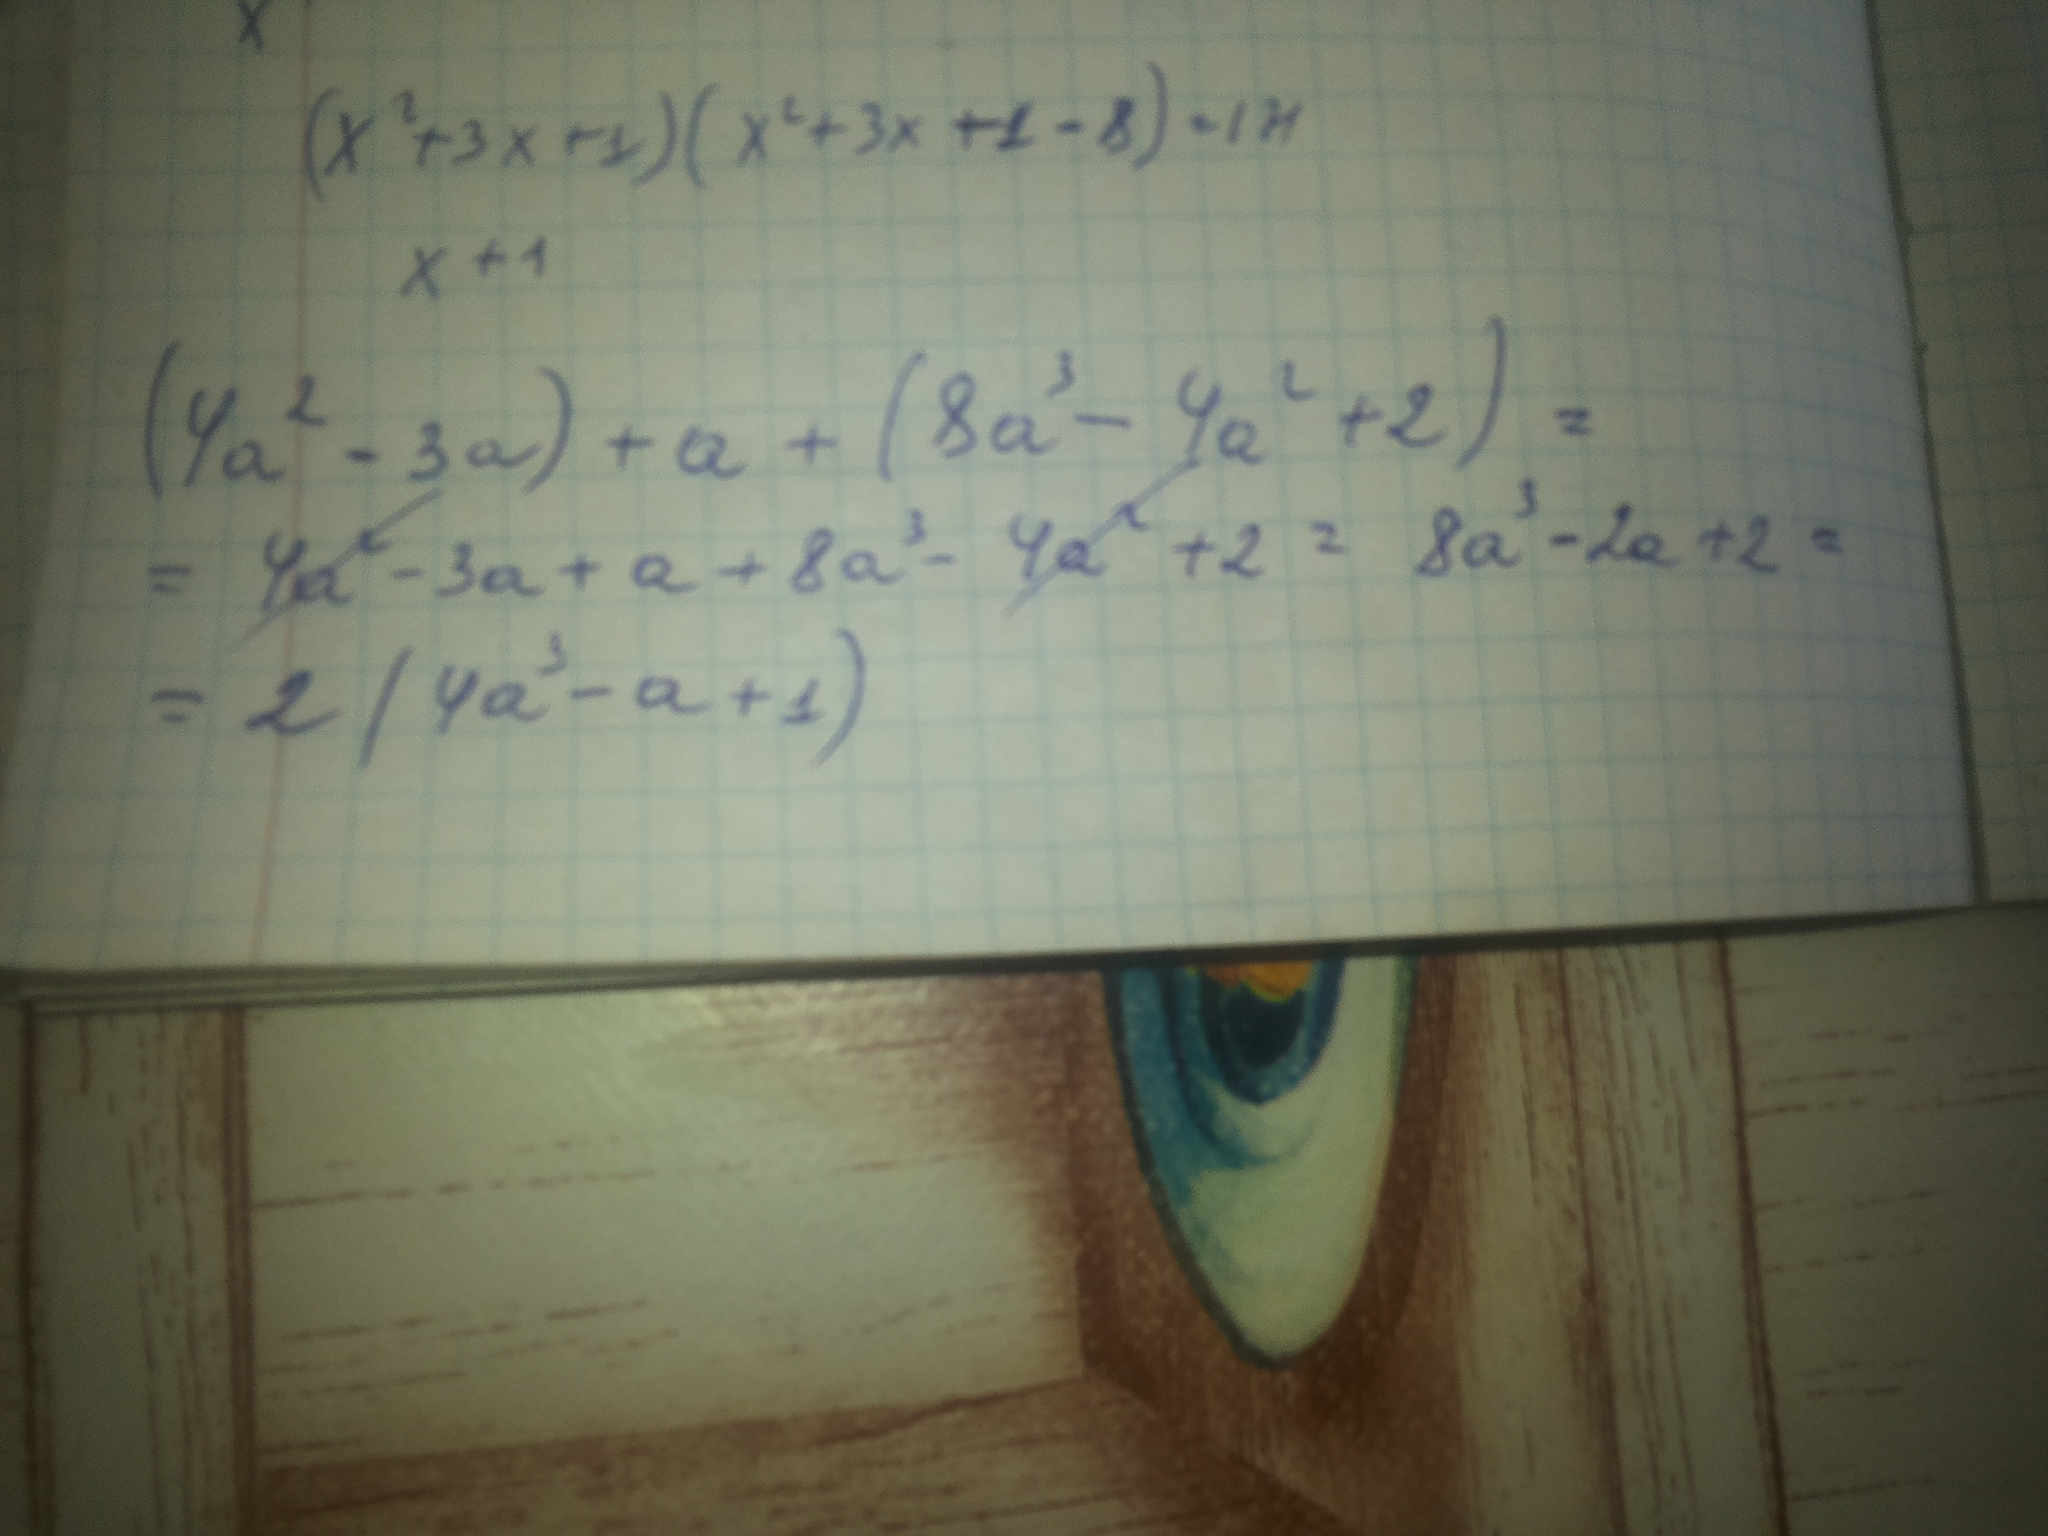 x
(x²+3x+1)(x²+3x+1-8)
x+1
(4a²-3a)+a+(8a³-4a²+2)=
=4a²-3a+a+8a³-4a²+2=8a³-2a+2=
=2(4a³-a+1)